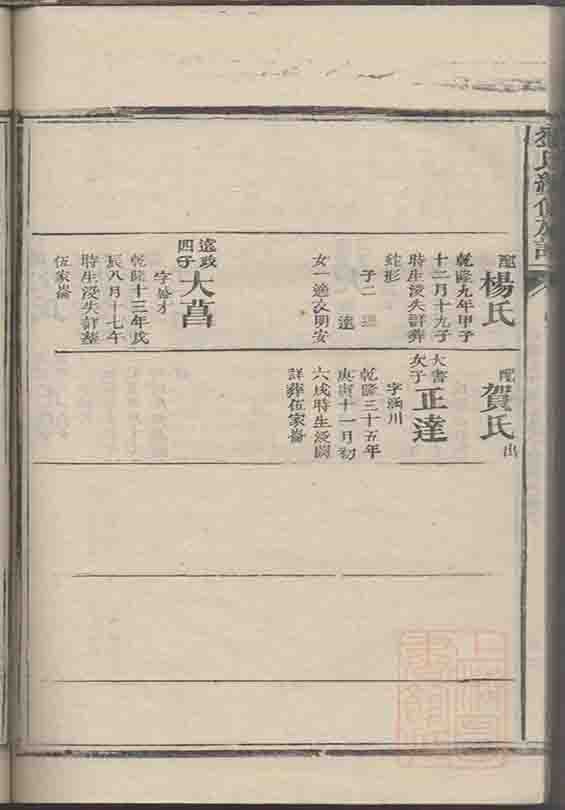 氏續修族譜
配
楊氏
乾隆九年甲子
十二月十九子
時生沒失詳葬
蛇形
子二
達
女一適汝明安
遠政
四子
大菖
字盛才
乾隆十三年戊
辰八月十七午
時生沒失詳葬
伍家崙
配
賀氏
出
大書
次子
正達
字涵川
乾隆三十五年
庚寅十一月初
六戌時生沒闕
詳葬伍家崙